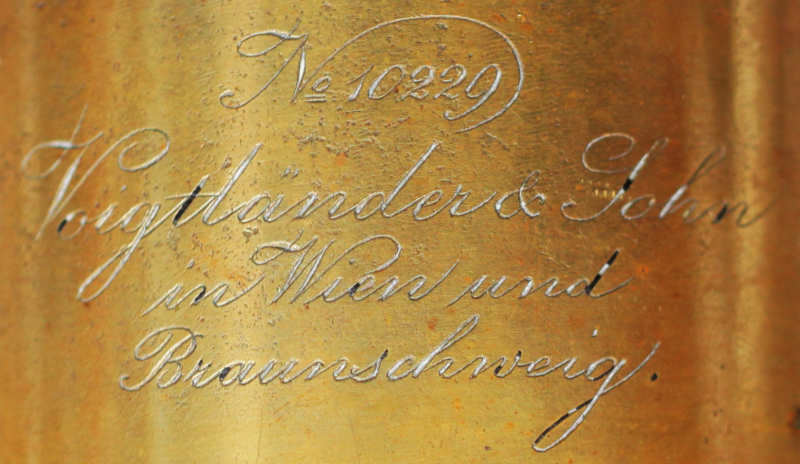 No 10229
Voigtländer & Sohn
in Wien und
Braunschweig.